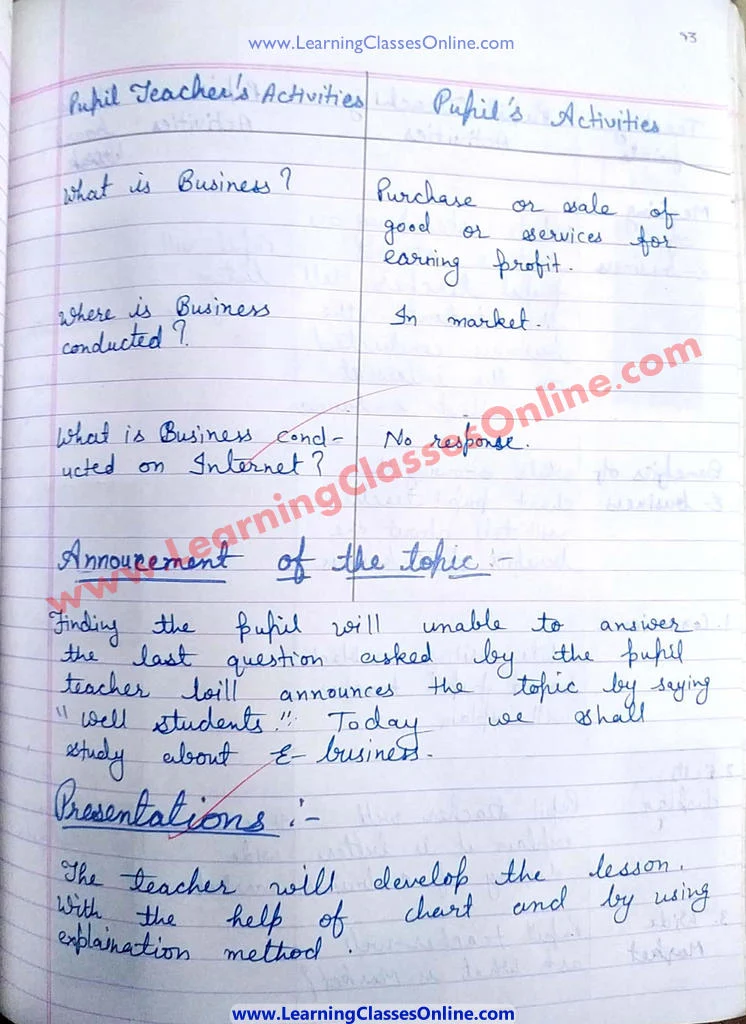 www.LearningClassesOnline.com
93
Pupil Teacher's Activities
Pupil's Activities
What is Business?
Purchase or sale of
good or services for
earning profit.
Where is Business
conducted?
In market.
What is Business cond-
ucted on Internet?
No response.
www.LearningClassesOnline.com
Annoucement of the topic :-
Finding the pupil will unable to answer
the last question asked by the pupil
teacher will announces the topic by saying
"Well students." Today we shall
study about E-business.
Presentations :-
The teacher will develop the lesson.
With the help of chart and by using
explaination method.
www.LearningClassesOnline.com